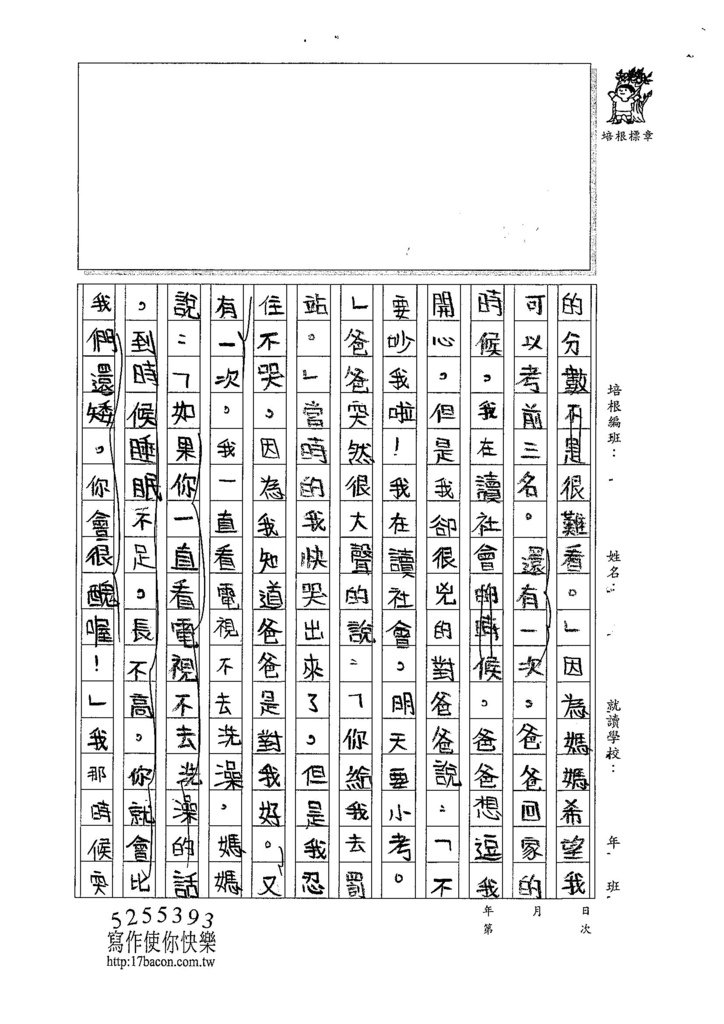 培根標章
培根編班：
姓名：
就讀學校：
年 班
日 月 年
次 第
的分數不是很難看。」因為媽媽希望我
可以考前三名。還有一次。爸爸回家的
時候。我在讀社會的時候。爸爸想逗我
開心。但是我卻很凶的對爸爸說：「不
要吵我啦！我在讀社會。明天要小考。
」爸爸突然很大聲的說：「你給我去罰
站。」當時的我快哭出來了，但是我忍
住不哭。因為我知道爸爸是對我好。又
有一次。我一直看電視不去洗澡，媽媽
說：「如果你一直看電視不去洗澡的話
，到時候睡眠不足。長不高。你就會比
我們還矮。你會很醜喔！」我那時候突
5255393
寫作使你快樂
http:17bacon.com.tw